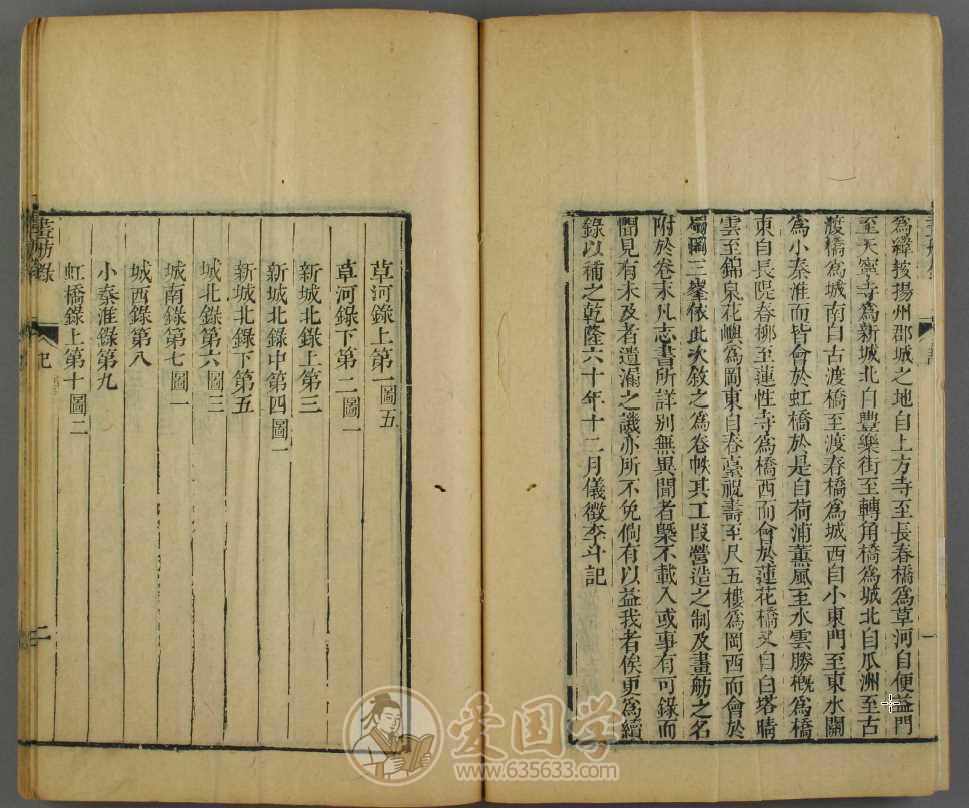 為緯按揚州郡城之地自上方寺至長春橋為草河自便益門
至天寧寺為新城北自豐樂街至轉角橋為城北自瓜洲至古
渡橋為城南自古渡橋至渡春橋為城西自小東門至東水關
為小秦淮而皆會於虹橋於是自荷浦薰風至水雲勝概為橋
東自長隄春柳至蓮性寺為橋西而會於蓮花橋又自白塔晴
雲至錦泉花嶼為岡東自春臺祝壽至尺五樓為岡西而會於
蜀岡三峯依此次敘之為卷帙其工段營造之制及畫舫之名
附於卷末凡志書所詳別無異聞者槩不載入或事有可錄而
聞見有未及者遺漏之譏亦所不免倘有以益我者俟更為續
錄以補之乾隆六十年十二月儀徵李斗記
草河錄上第一圖五
草河錄下第二圖一
新城北錄上第三
新城北錄中第四圖一
新城北錄下第五
城北錄第六圖三
城南錄第七圖一
城西錄第八
小秦淮錄第九
虹橋錄上第十圖二
畫舫錄
記
二
爱国学
www.635633.com